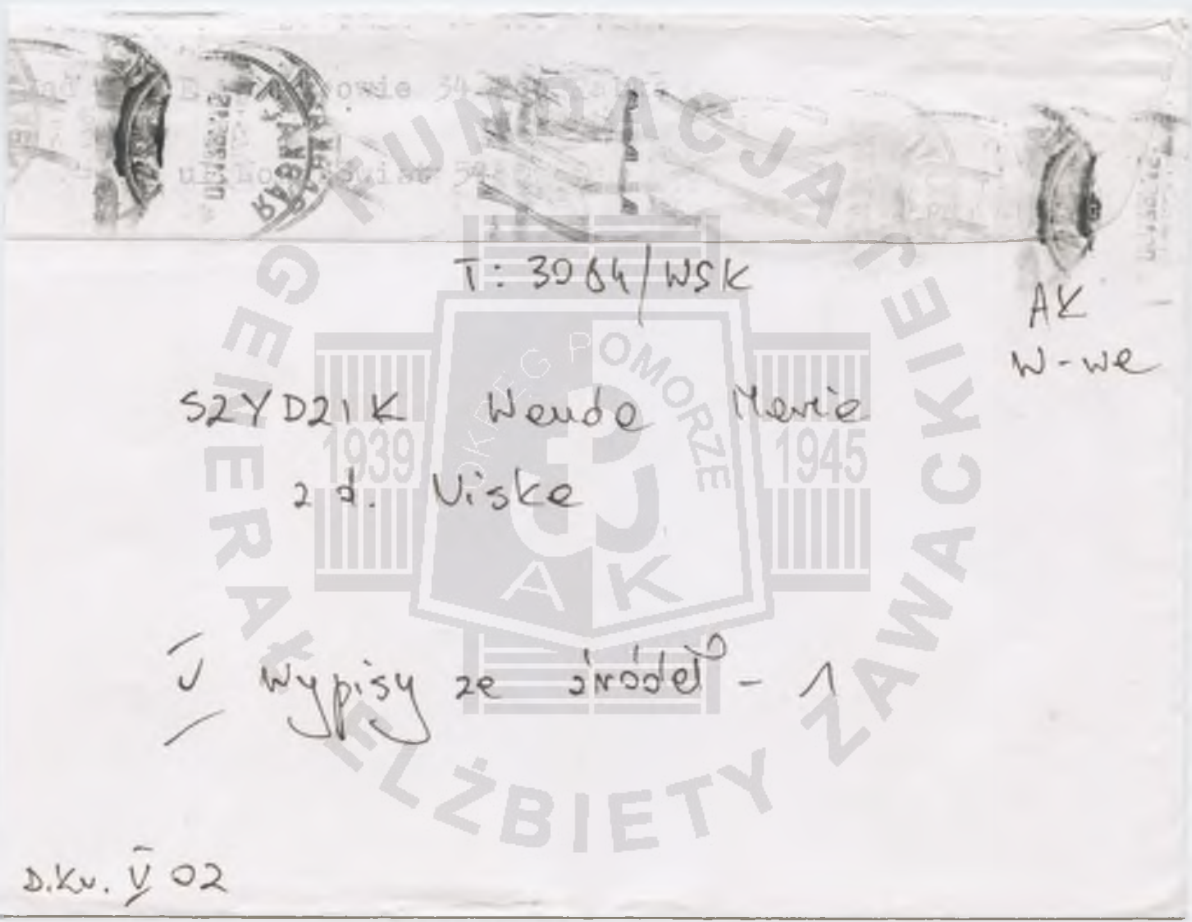 T: 3084/WSK
AK
W-wa
SZYDZIK Wanda Maria
z d. Viske
V Wypisy ze źródeł - 1
D.Kr. V 02
FUNDACJA GENERAŁ ELŻBIETY ZAWACKIEJ
OKRĘG POMORZE
1939
1945
AK